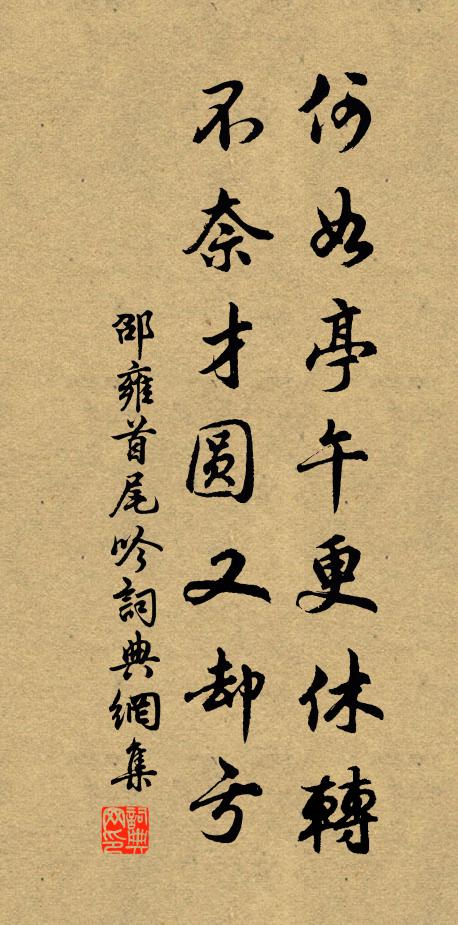 何如亭午更休轉
不奈才圓又却亏
邵雍首尾吟詞典網集
詞典網印